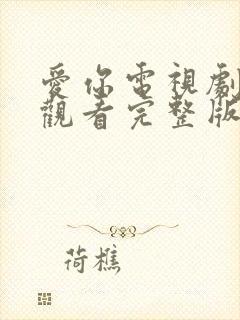 愛你電視劇
觀看完整版
荷樵